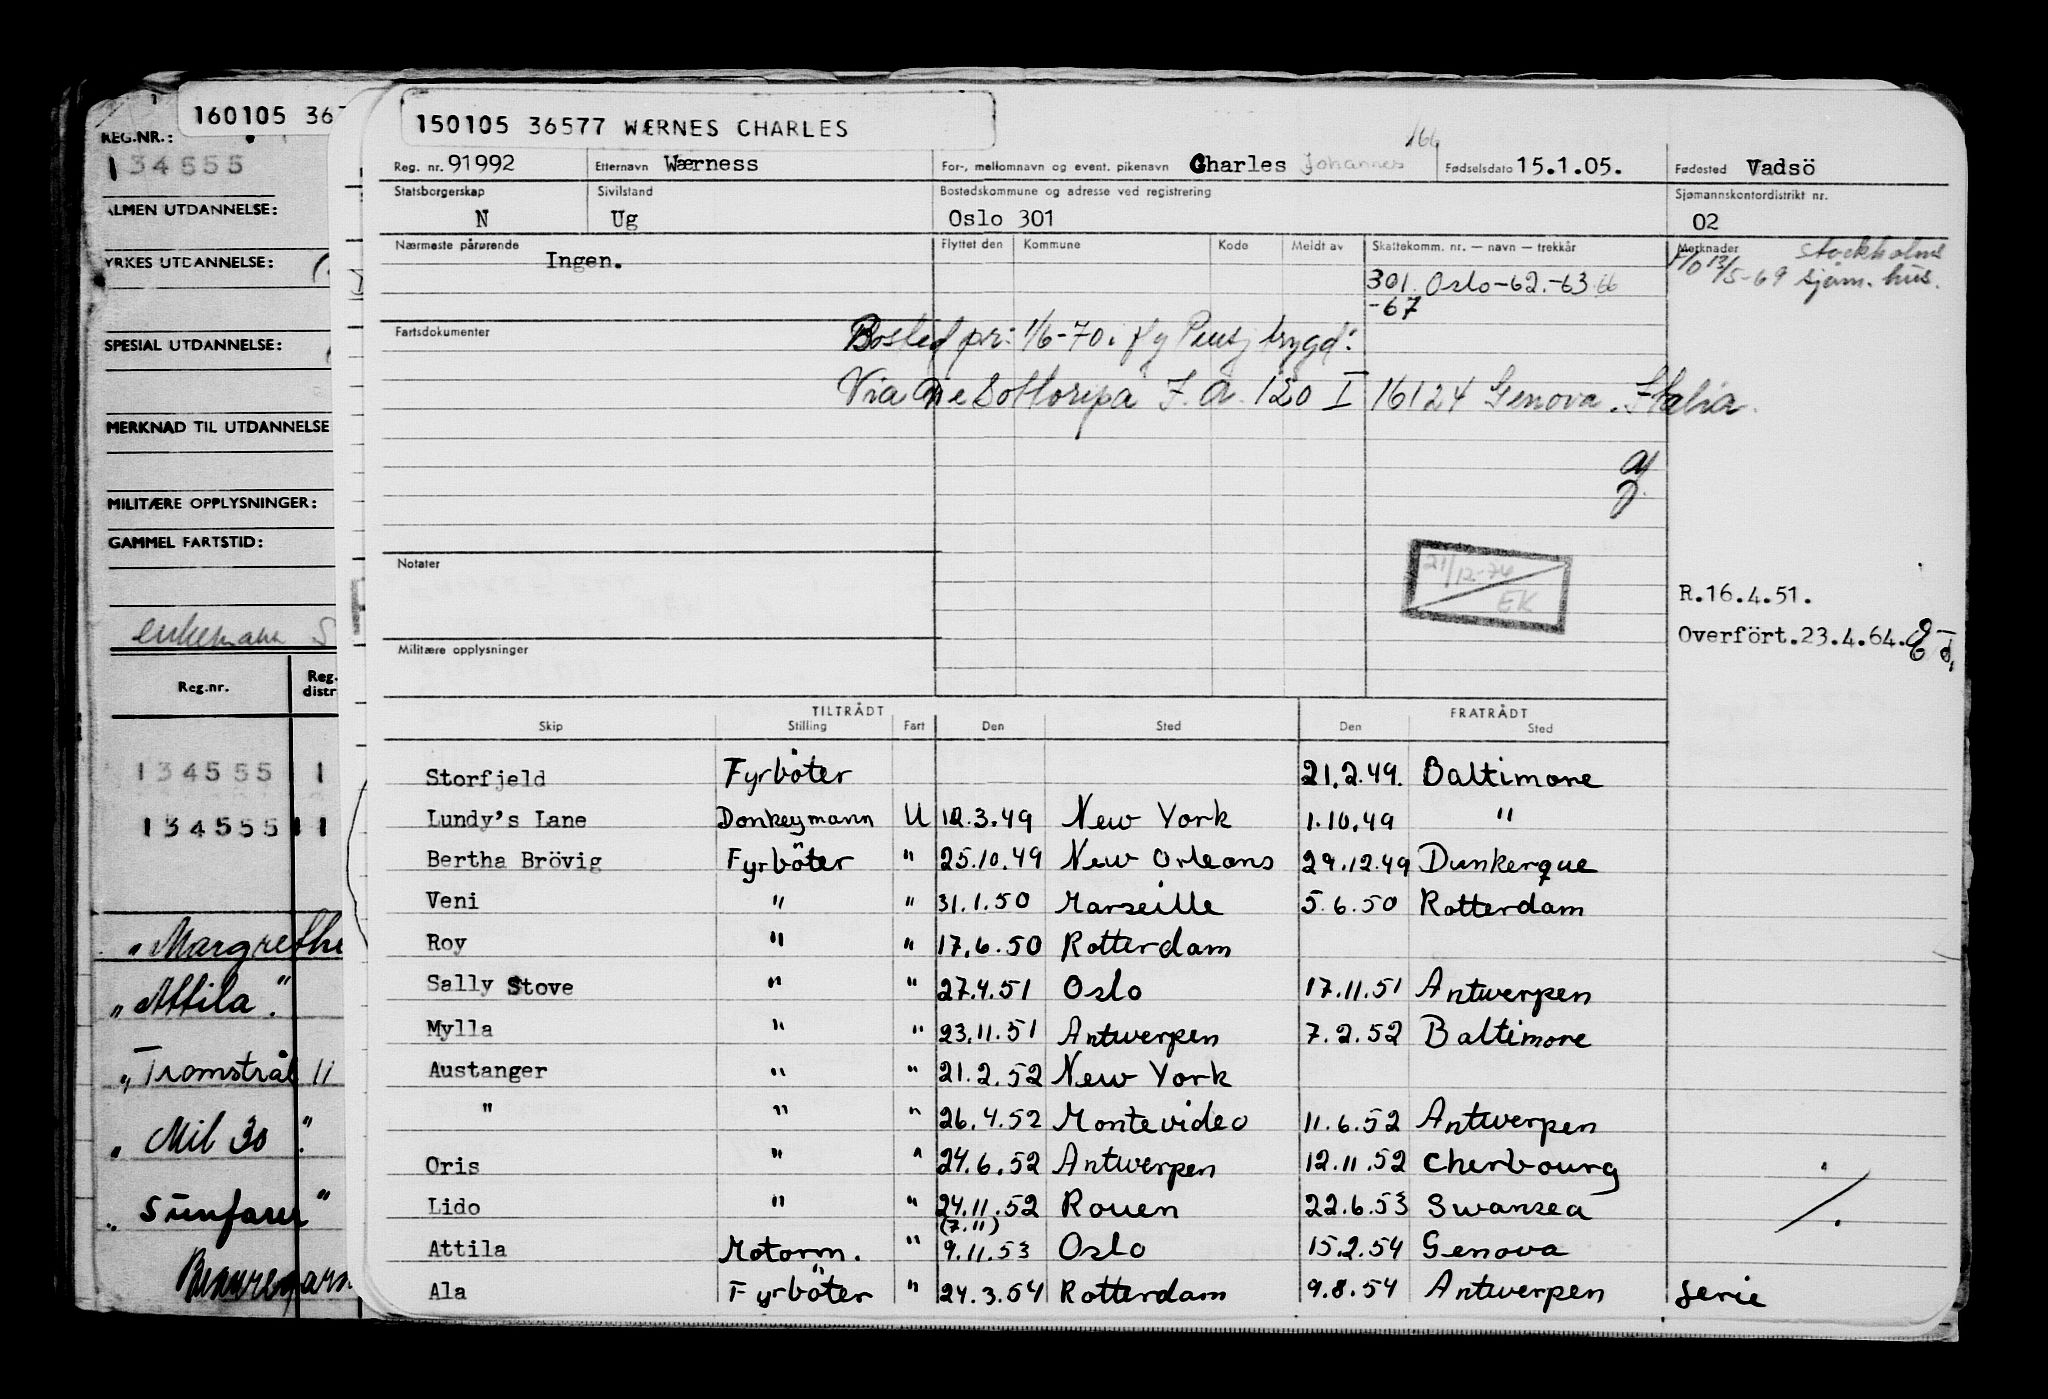 160105 36
REG.NR.:
134555
ALMEN UTDANNELSE:
YRKES UTDANNELSE:
SPESIAL UTDANNELSE:
MERKNAD TIL UTDANNELSE
MILITÆRE OPPLYSNINGER:
GAMMEL FARTSTID:
enkemann S
Reg.nr. Reg. distr
134555 1
134555 11
"Margrethe
"Attila".
"Tromstrål 11
" Mil 30 ".
" Sunfarer"
150105 36577 WÆRNES CHARLES
166
Reg. nr. 91992 Etternavn Wærness For-, mellomnavn og event. pikenavn Charles Johannes Fødselsdato 15.1.05. Fødested Vadsö
Statsborgerskap Sivilstand Bostedskommune og adresse ved registrering Sjømannskontordistrikt nr.
N Ug Oslo 301 02
Nærmeste pårørende Flyttet den Kommune Kode Meldt av Skattekomm. nr. — navn — trekkår Merknader
Ingen. 13/5-69 Stockholms
sjøm. hus.
301 Oslo-62.-63 66
-67
Fartsdokumenter
Bosted pr: 1/6-70 i flg Pensj trygd:
Via Sottoripa I. A. 120 I 16124 Genova. Italia.
Notater
21/12-74
EK
R.16.4.51.
Overfört.23.4.64.
Militære opplysninger
TILTRÅDT FRATRÅDT
Skip Stilling Fart Den Sted Den Sted
Storfjeld Fyrböter 21.2.49. Baltimore
Lundy's Lane Donkeymann U 12.3.49 New York 1.10.49 "
Bertha Brövig Fyrböter " 25.10.49 New Orleans 29.12.49 Dunkerque
Veni " " 31.1.50 Marseille 5.6.50 Rotterdam
Roy " " 17.6.50 Rotterdam
Sally Stove " " 27.4.51 Oslo 17.11.51 Antwerpen
Mylla " " 23.11.51 Antwerpen 7.2.52 Baltimore
Austanger " " 21.2.52 New York
" " " 26.4.52 Montevideo 11.6.52 Antwerpen
Oris " " 24.6.52 Antwerpen 12.11.52 Cherbourg
Lido " " 24.11.52 Rouen 22.6.53 Swansea
(7.11)
Attila Motorm. " 9.11.53 Oslo 15.2.54 Genova
Ala Fyrböter " 24.3.54 Rotterdam 9.8.54 Antwerpen Serie